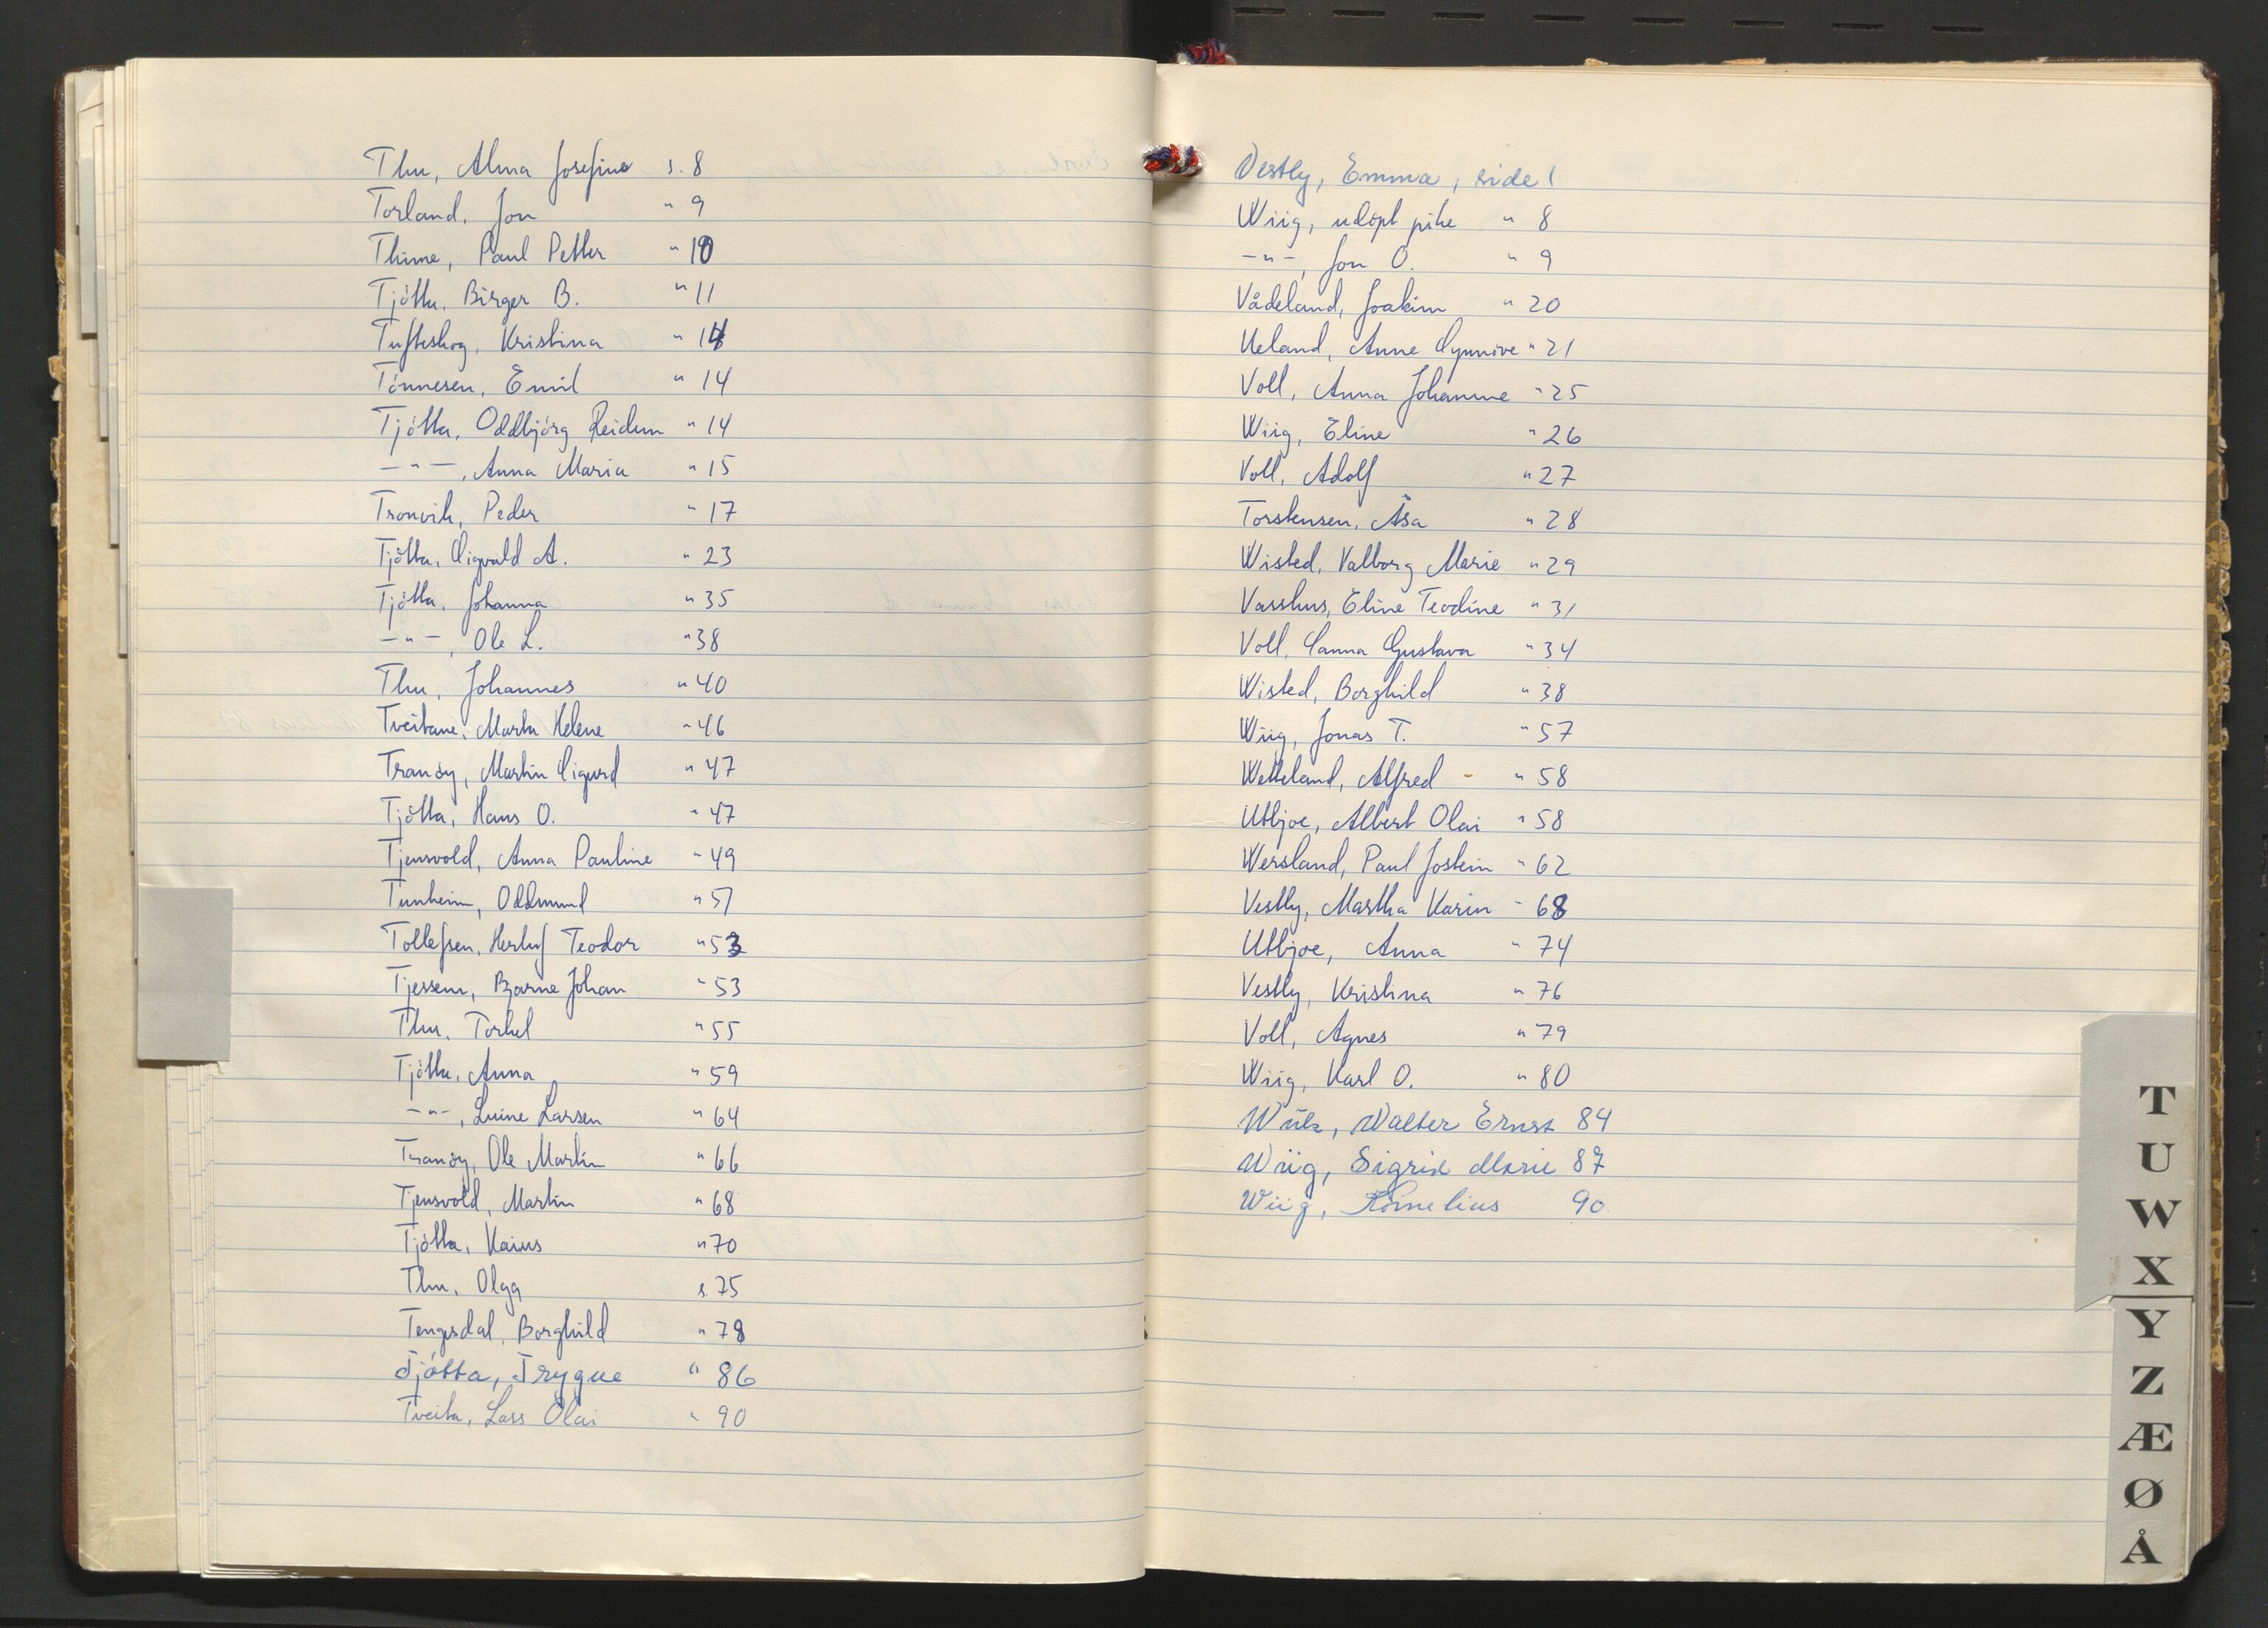 Thu, Alma Josefine s. 8
Torland, Jon " 9
Thime, Paul Petter " 10
Tjötta, Birger B. " 11
Tufteskog, Kristina " 14
Tönnesen, Emil " 14
Tjötta, Oddbjörg Reidun " 14
-"-, Anna Maria " 15
Tronvik, Peder " 17
Tjötta, Sigvald A. " 23
Tjötta, Johanna " 35
-"-, Ole L. " 38
Thu, Johannes " 40
Tveitane, Marta Helene " 46
Tranöy, Martin Sigurd " 47
Tjötta, Hans O. " 47
Tjensvold, Anna Pauline " 49
Tunheim, Oddmund " 51
Tollefsen, Herluf Teodor " 53
Tjessem, Bjarne Johan " 53
Thu, Torkel " 55
Tjötta, Anna " 59
-"-, Luine Larsen " 64
Tranöy, Ole Martin " 66
Tjensvold, Martin " 68
Tjötta, Kaius " 70
Thu, Olga s. 75
Tengesdal, Borghild " 78
Tjøtta, Trygve " 86
Tveita, Lars Olai " 90
Vestly, Emma, side 1
Wiig, udöpt pike " 8
-"-, Jon O. " 9
Vådeland, Joakim " 20
Ueland, Anne Synnive " 21
Voll, Anna Johanne " 25
Wiig, Eline " 26
Voll, Adolf " 27
Torstensen, Åsa " 28
Wisted, Valborg Marie " 29
Vasshus, Eline Teodine " 31
Voll, Sanna Gustava " 34
Wisted, Borghild " 38
Wiig, Jonas T. " 57
Wetteland, Alfred - " 58
Utbjoe, Albert Olai " 58
Wersland, Paul Jostein " 62
Vestly, Martha Karin " 68
Utbjoe, Anna " 74
Vestly, Kristina " 76
Voll, Agnes " 79
Wiig, Karl O. " 80
Walter Ernst 84
Wiig, Sigrid Marie 87
Wiig, Kornelius 90
T
U
W
X
Y
Z
Æ
Ø
Å